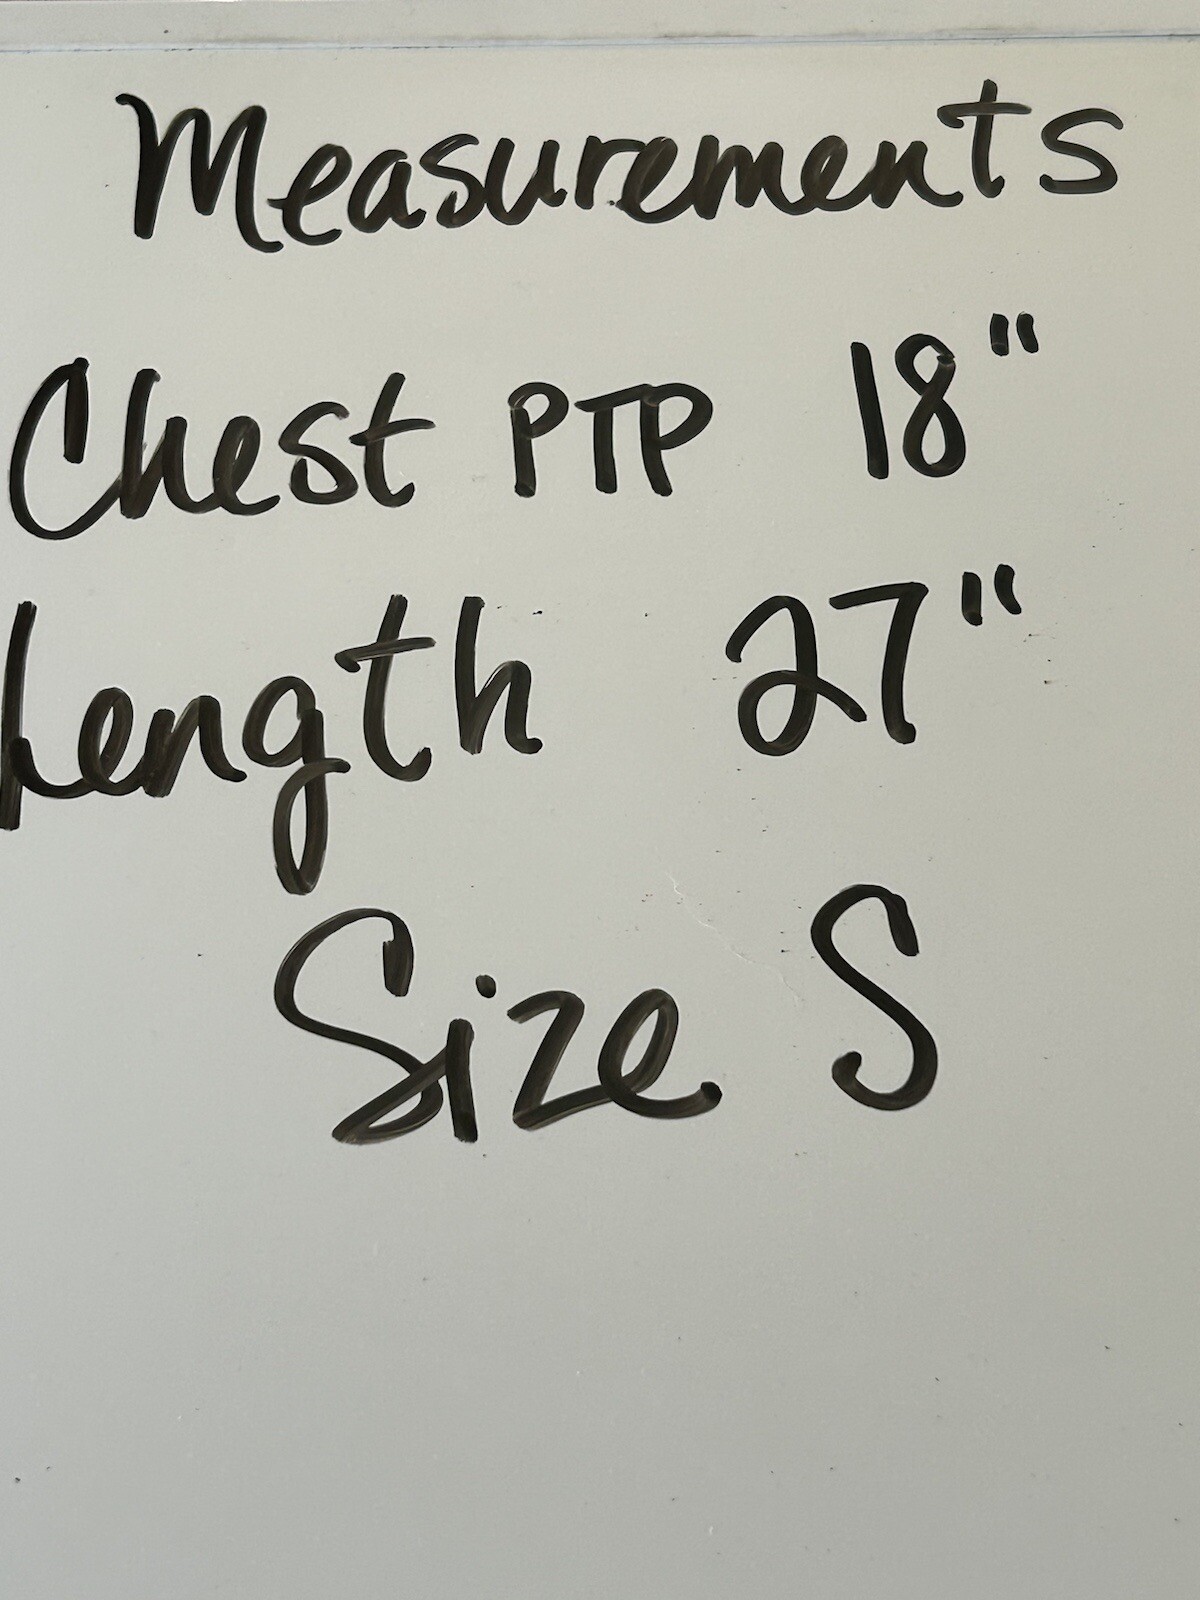 Measurements
Chest PTP 18"
Length 27"
Size S